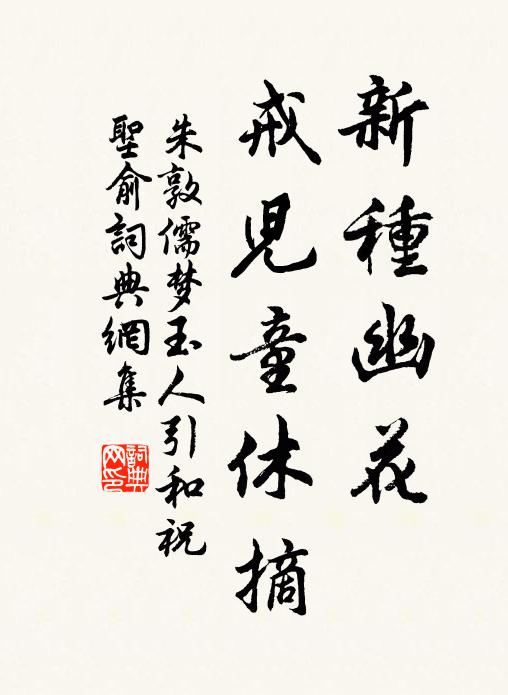 新種幽花
戒兒童休摘
朱敦儒梦玉人引和祝
聖俞詞典網集
詞典
网印